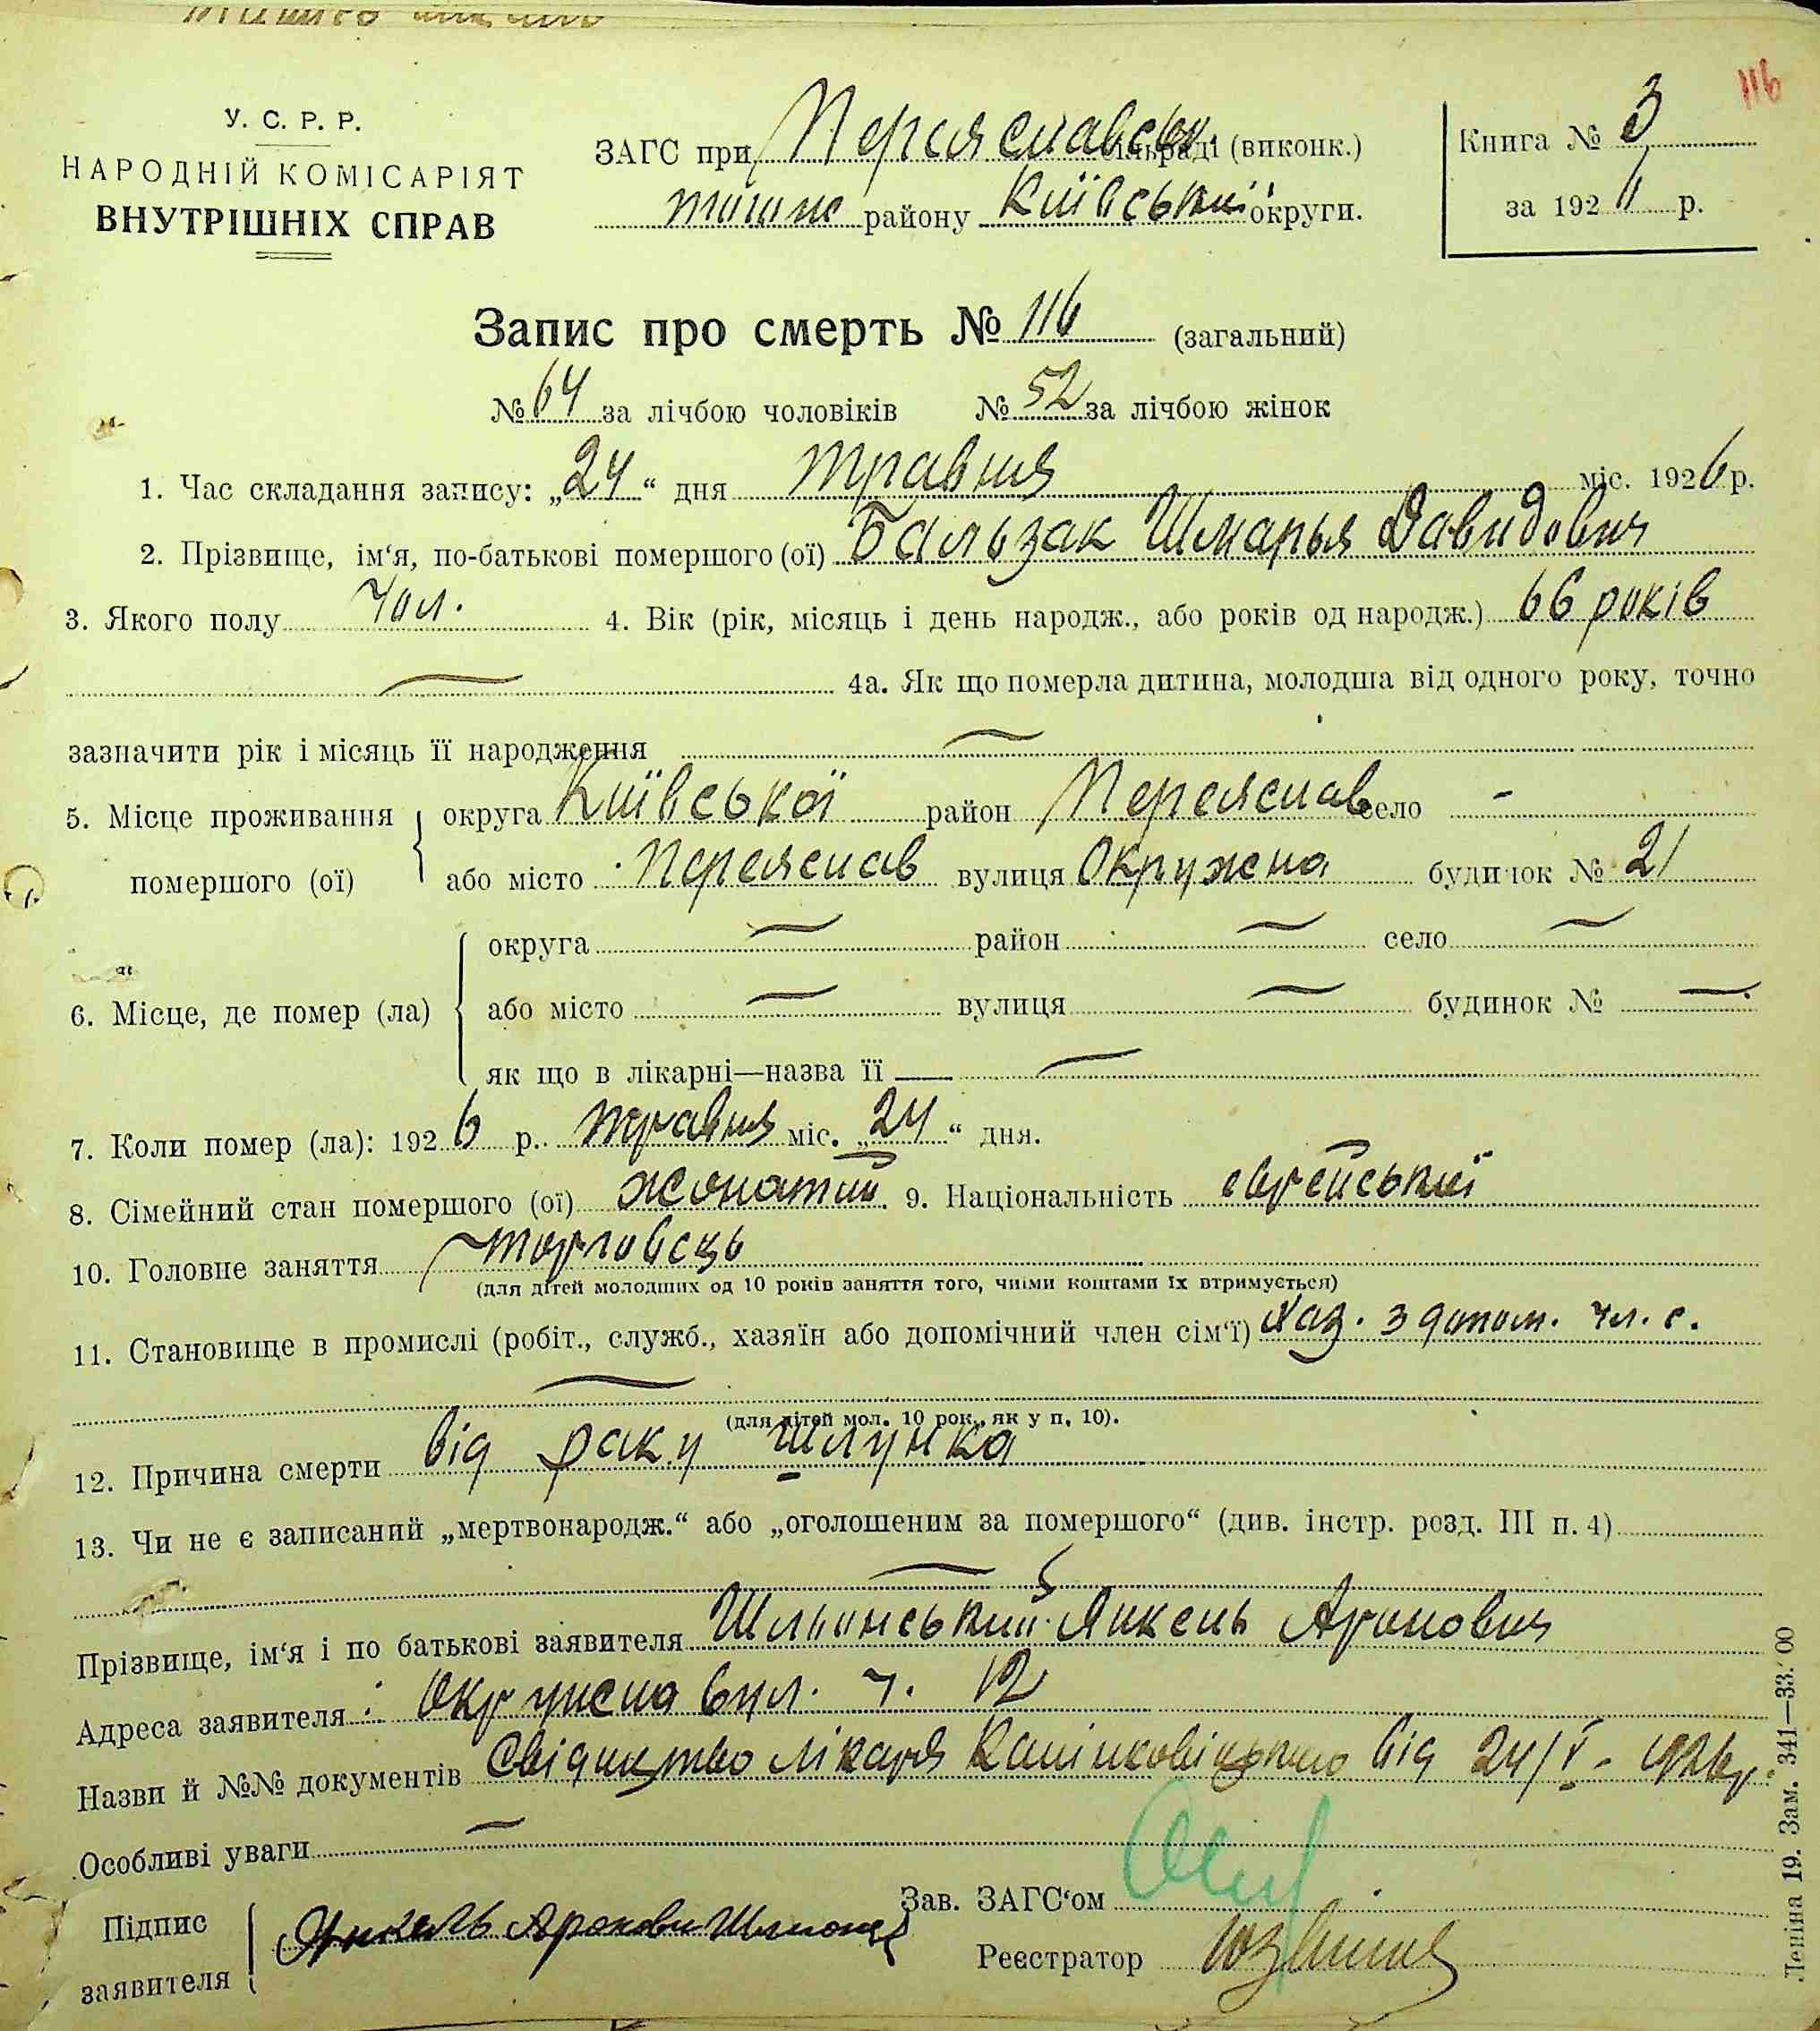 116
У. С. Р. Р.
НАРОДНІЙ КОМІСАРІЯТ
ВНУТРІШНІХ СПРАВ
ЗАГС при Переяславськ. сільраді (виконк.)
району Київської округи.
Книга № 3
за 1926 р.
Запис про смерть № 116 (загальний)
№ 64 за лічбою чоловіків № 52 за лічбою жінок
1. Час складання запису: „24“ дня травня міс. 1926 р.
2. Прізвище, ім‘я, по-батькові помершого (ої) Бальзак Шмарья Давидович
3. Якого полу чол. 4. Вік (рік, місяць і день народж., або років од народж.) 66 років
4а. Як що померла дитина, молодша від одного року, точно
зазначити рік і місяць її народження —
5. Місце проживання помершого (ої) округа Київської район Переяслав село -
або місто Переяслав вулиця Окружна будинок № 21
6. Місце, де помер (ла) округа — район — село —
або місто — вулиця — будинок № —
як що в лікарні—назва її —
7. Коли помер (ла): 1926 р. травня міс. „24“ дня.
8. Сімейний стан помершого (ої) жонатий. 9. Національність єврейської
10. Головне заняття торговець
(для дітей молодших од 10 років заняття того, чиїми коштами їх втримується)
11. Становище в промислі (робіт., служб., хазяїн або допомічний член сім‘ї) Хаз. з допом. чл. с.
(для дітей мол. 10 рок., як у п. 10).
12. Причина смерти від раку шлунка
13. Чи не є записаний „мертвонародж.“ або „оголошеним за помершого“ (див. інстр. розд. III п. 4)
Прізвище, ім‘я і по батькові заявителя Янкель Аронович
Адреса заявителя: Окружна вул. ч. 12
Назви й №№ документів Свідицтво лікаря від 24/V - 1926 р.
Особливі уваги —
Підпис заявителя Янкель Аронович
Зав. ЗАГС‘ом
Реєстратор
Леніна 19. Зам. 341—33.000